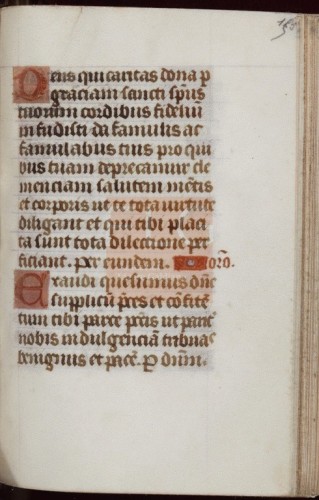 Deus qui caritas dona p
graciam sancti sp̃us
tuorum cordibus fideliũ
infudisti da famulis ac
famulabus tuis pro qui
bus tuam deprecamur cle
menciam salutem mẽtis
et corporis ut te tota uirtute
diligant et qui tibi placi
ta sunt tota dilectione per
ficiant. per eundem. orõ.
Exaudi quesumus dñe
supplicũ p̃ces et cõfitẽ
tium tibi parce
nobis indulgenciã tribuas
benignus et pacẽ. p dñm.